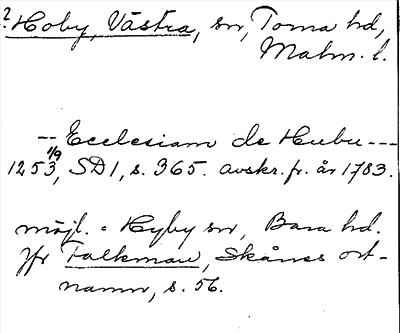 ? Hoby, Västra, sn, Torna hd,
Malm. l.
-- Ecclesiam de Hubu ---
1253 1/9, SD 1, s. 365. avskr. fr. år 1783.
möjl. = Hyby sn, Bara hd.
Jfr Falkman, Skånes ort-
namn, s. 56.